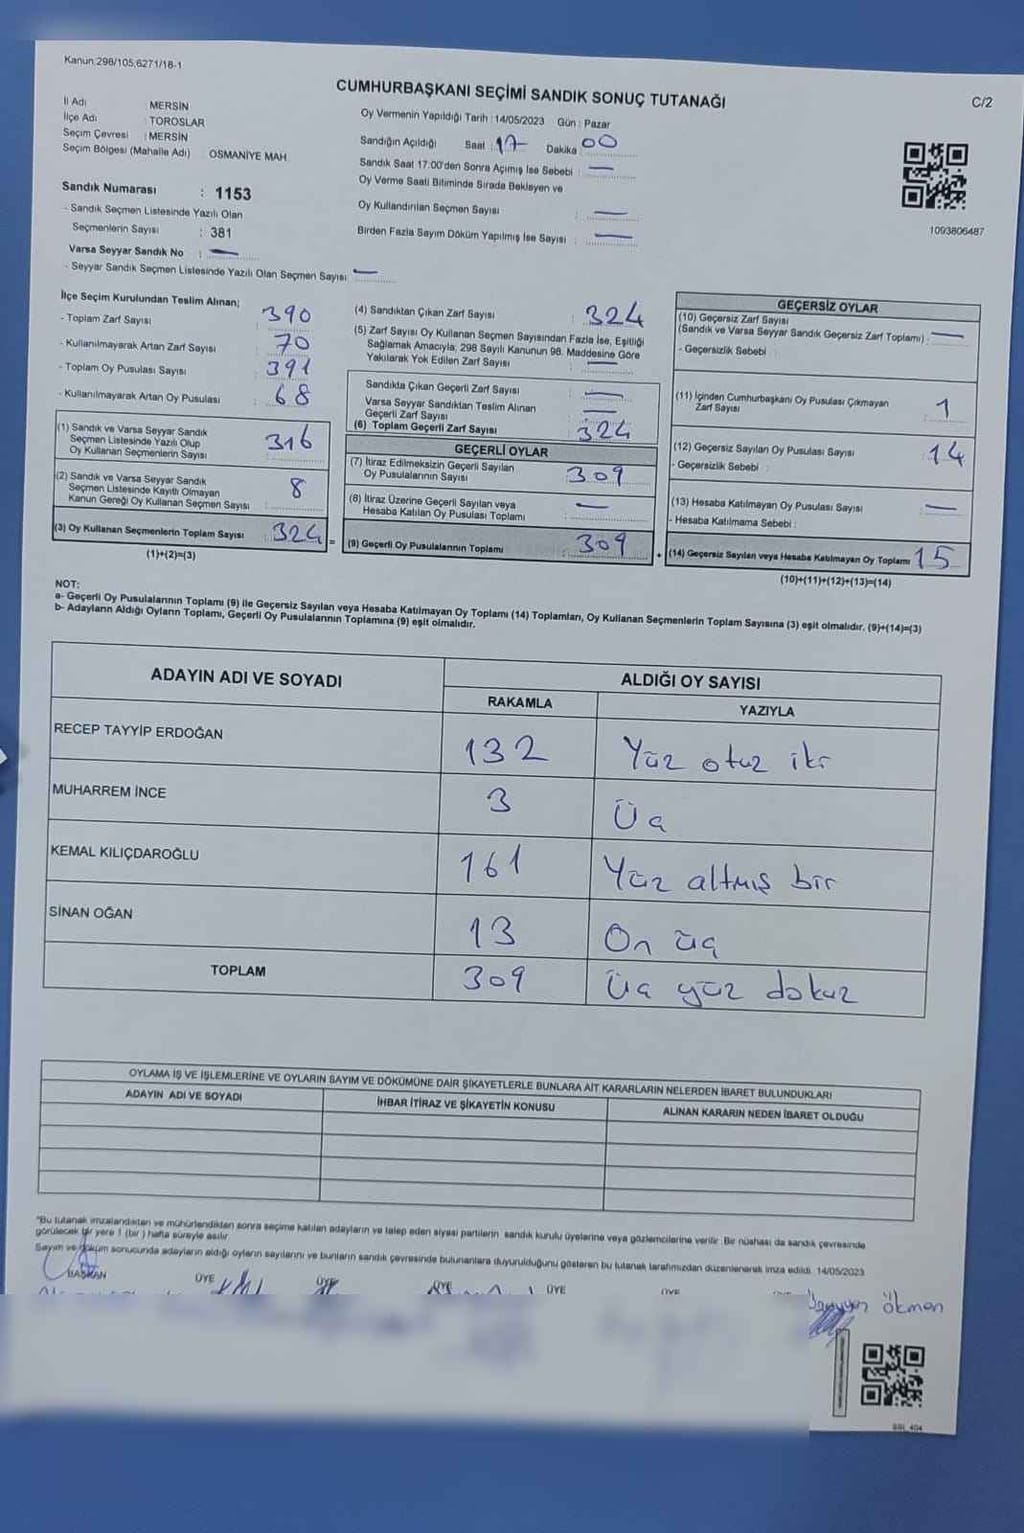 Kanun:298/105,6271/18-1
CUMHURBAŞKANI SEÇİMİ SANDIK SONUÇ TUTANAĞI
C/2
İl Adı : MERSİN
İlçe Adı : TOROSLAR
Seçim Çevresi : MERSİN
Seçim Bölgesi (Mahalle Adı) : OSMANİYE MAH.
Sandık Numarası : 1153
- Sandık Seçmen Listesinde Yazılı Olan
Seçmenlerin Sayısı : 381
Varsa Seyyar Sandık No : —
- Seyyar Sandık Seçmen Listesinde Yazılı Olan Seçmen Sayısı: —
Oy Vermenin Yapıldığı Tarih : 14/05/2023 Gün : Pazar
Sandığın Açıldığı Saat : 17 Dakika : 00
Sandık Saat 17:00'den Sonra Açımış İse Sebebi : —
Oy Verme Saati Bitiminde Sırada Bekleyen ve
Oy Kullandırılan Seçmen Sayısı : —
Birden Fazla Sayım Döküm Yapılmış İse Sayısı : —
1093806487
İlçe Seçim Kurulundan Teslim Alınan;
- Toplam Zarf Sayısı : 390
- Kullanılmayarak Artan Zarf Sayısı : 70
- Toplam Oy Pusulası Sayısı : 391
- Kullanılmayarak Artan Oy Pusulası : 68
(1) Sandık ve Varsa Seyyar Sandık
Seçmen Listesinde Yazılı Olup
Oy Kullanan Seçmenlerin Sayısı : 316
(2) Sandık ve Varsa Seyyar Sandık
Seçmen Listesinde Kayıtlı Olmayan
Kanun Gereği Oy Kullanan Seçmen Sayısı : 8
(3) Oy Kullanan Seçmenlerin Toplam Sayısı : 324 =
(1)+(2)=(3)
(4) Sandıktan Çıkan Zarf Sayısı : 324
(5) Zarf Sayısı Oy Kullanan Seçmen Sayısından Fazla İse, Eşitliği
Sağlamak Amacıyla, 298 Sayılı Kanunun 98. Maddesine Göre
Yakılarak Yok Edilen Zarf Sayısı : —
Sandıkta Çıkan Geçerli Zarf Sayısı : —
Varsa Seyyar Sandıktan Teslim Alınan
Geçerli Zarf Sayısı : —
(6) Toplam Geçerli Zarf Sayısı : 324
GEÇERLİ OYLAR
(7) İtiraz Edilmeksizin Geçerli Sayılan
Oy Pusulalarının Sayısı : 309
(8) İtiraz Üzerine Geçerli Sayılan veya
Hesaba Katılan Oy Pusulası Toplamı : —
(9) Geçerli Oy Pusulalarının Toplamı : 309 +
GEÇERSİZ OYLAR
(10) Geçersiz Zarf Sayısı
(Sandık ve Varsa Seyyar Sandık Geçersiz Zarf Toplamı) : —
- Geçersizlik Sebebi :
(11) İçinden Cumhurbaşkanı Oy Pusulası Çıkmayan
Zarf Sayısı : 1
(12) Geçersiz Sayılan Oy Pusulası Sayısı : 14
- Geçersizlik Sebebi :
(13) Hesaba Katılmayan Oy Pusulası Sayısı : —
- Hesaba Katılmama Sebebi :
(14) Geçersiz Sayılan veya Hesaba Katılmayan Oy Toplamı : 15
(10)+(11)+(12)+(13)=(14)
NOT:
a- Geçerli Oy Pusulalarının Toplamı (9) ile Geçersiz Sayılan veya Hesaba Katılmayan Oy Toplamı (14) Toplamları, Oy Kullanan Seçmenlerin Toplam Sayısına (3) eşit olmalıdır. (9)+(14)=(3)
b- Adayların Aldığı Oyların Toplamı, Geçerli Oy Pusulalarının Toplamına (9) eşit olmalıdır.
ADAYIN ADI VE SOYADI ALDIĞI OY SAYISI
RAKAMLA YAZIYLA
RECEP TAYYİP ERDOĞAN 132 Yüz otuz iki
MUHARREM İNCE 3 Üç
KEMAL KILIÇDAROĞLU 161 Yüz altmış bir
SİNAN OĞAN 13 On üç
TOPLAM 309 Üç yüz dokuz
OYLAMA İŞ VE İŞLEMLERİNE VE OYLARIN SAYIM VE DÖKÜMÜNE DAİR ŞİKAYETLERLE BUNLARA AİT KARARLARIN NELERDEN İBARET BULUNDUKLARI
ADAYIN ADI VE SOYADI İHBAR İTİRAZ VE ŞİKAYETİN KONUSU ALINAN KARARIN NEDEN İBARET OLDUĞU
"Bu tutanak imzalandıktan ve mühürlendikten sonra seçime katılan adayların ve talep eden siyasi partilerin sandık kurulu üyelerine veya gözlemcilerine verilir. Bir nüshası da sandık çevresinde
görülecek bir yere 1 (bir ) hafta süreyle asılır.
Sayım ve döküm sonucunda adayların aldığı oyların sayılarını ve bunların sandık çevresinde bulunanlara duyurulduğunu gösteren bu tutanak tarafımızdan düzenlenerek imza edildi. 14/05/2023
BAŞKAN ÜYE ÜYE ÜYE ÜYE ÜYE
Ökmen